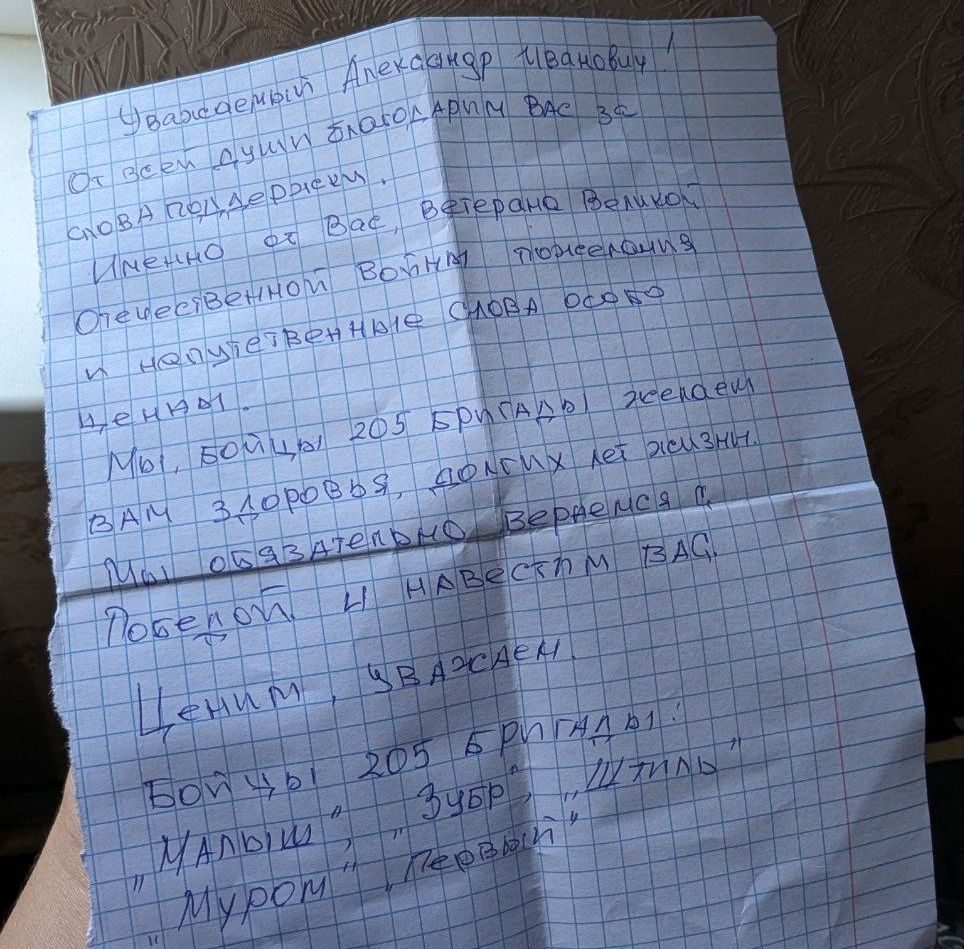 Уважаемый Александр Иванович!
От всей души благодарим Вас за
слова поддержки.
Именно от Вас, ветерана Великой
Отечественной Войны пожелания
и напутственные слова особо
ценны.
Мы, бойцы 205 бригады желаем
Вам здоровья, долгих лет жизни.
Мы обязательно вернемся с
Победой. И навестим Вас.
Ценим, уважаем.
Бойцы 205 бригады:
„Малыш", „Зубр", „Штиль"
„Муром" „Первый"